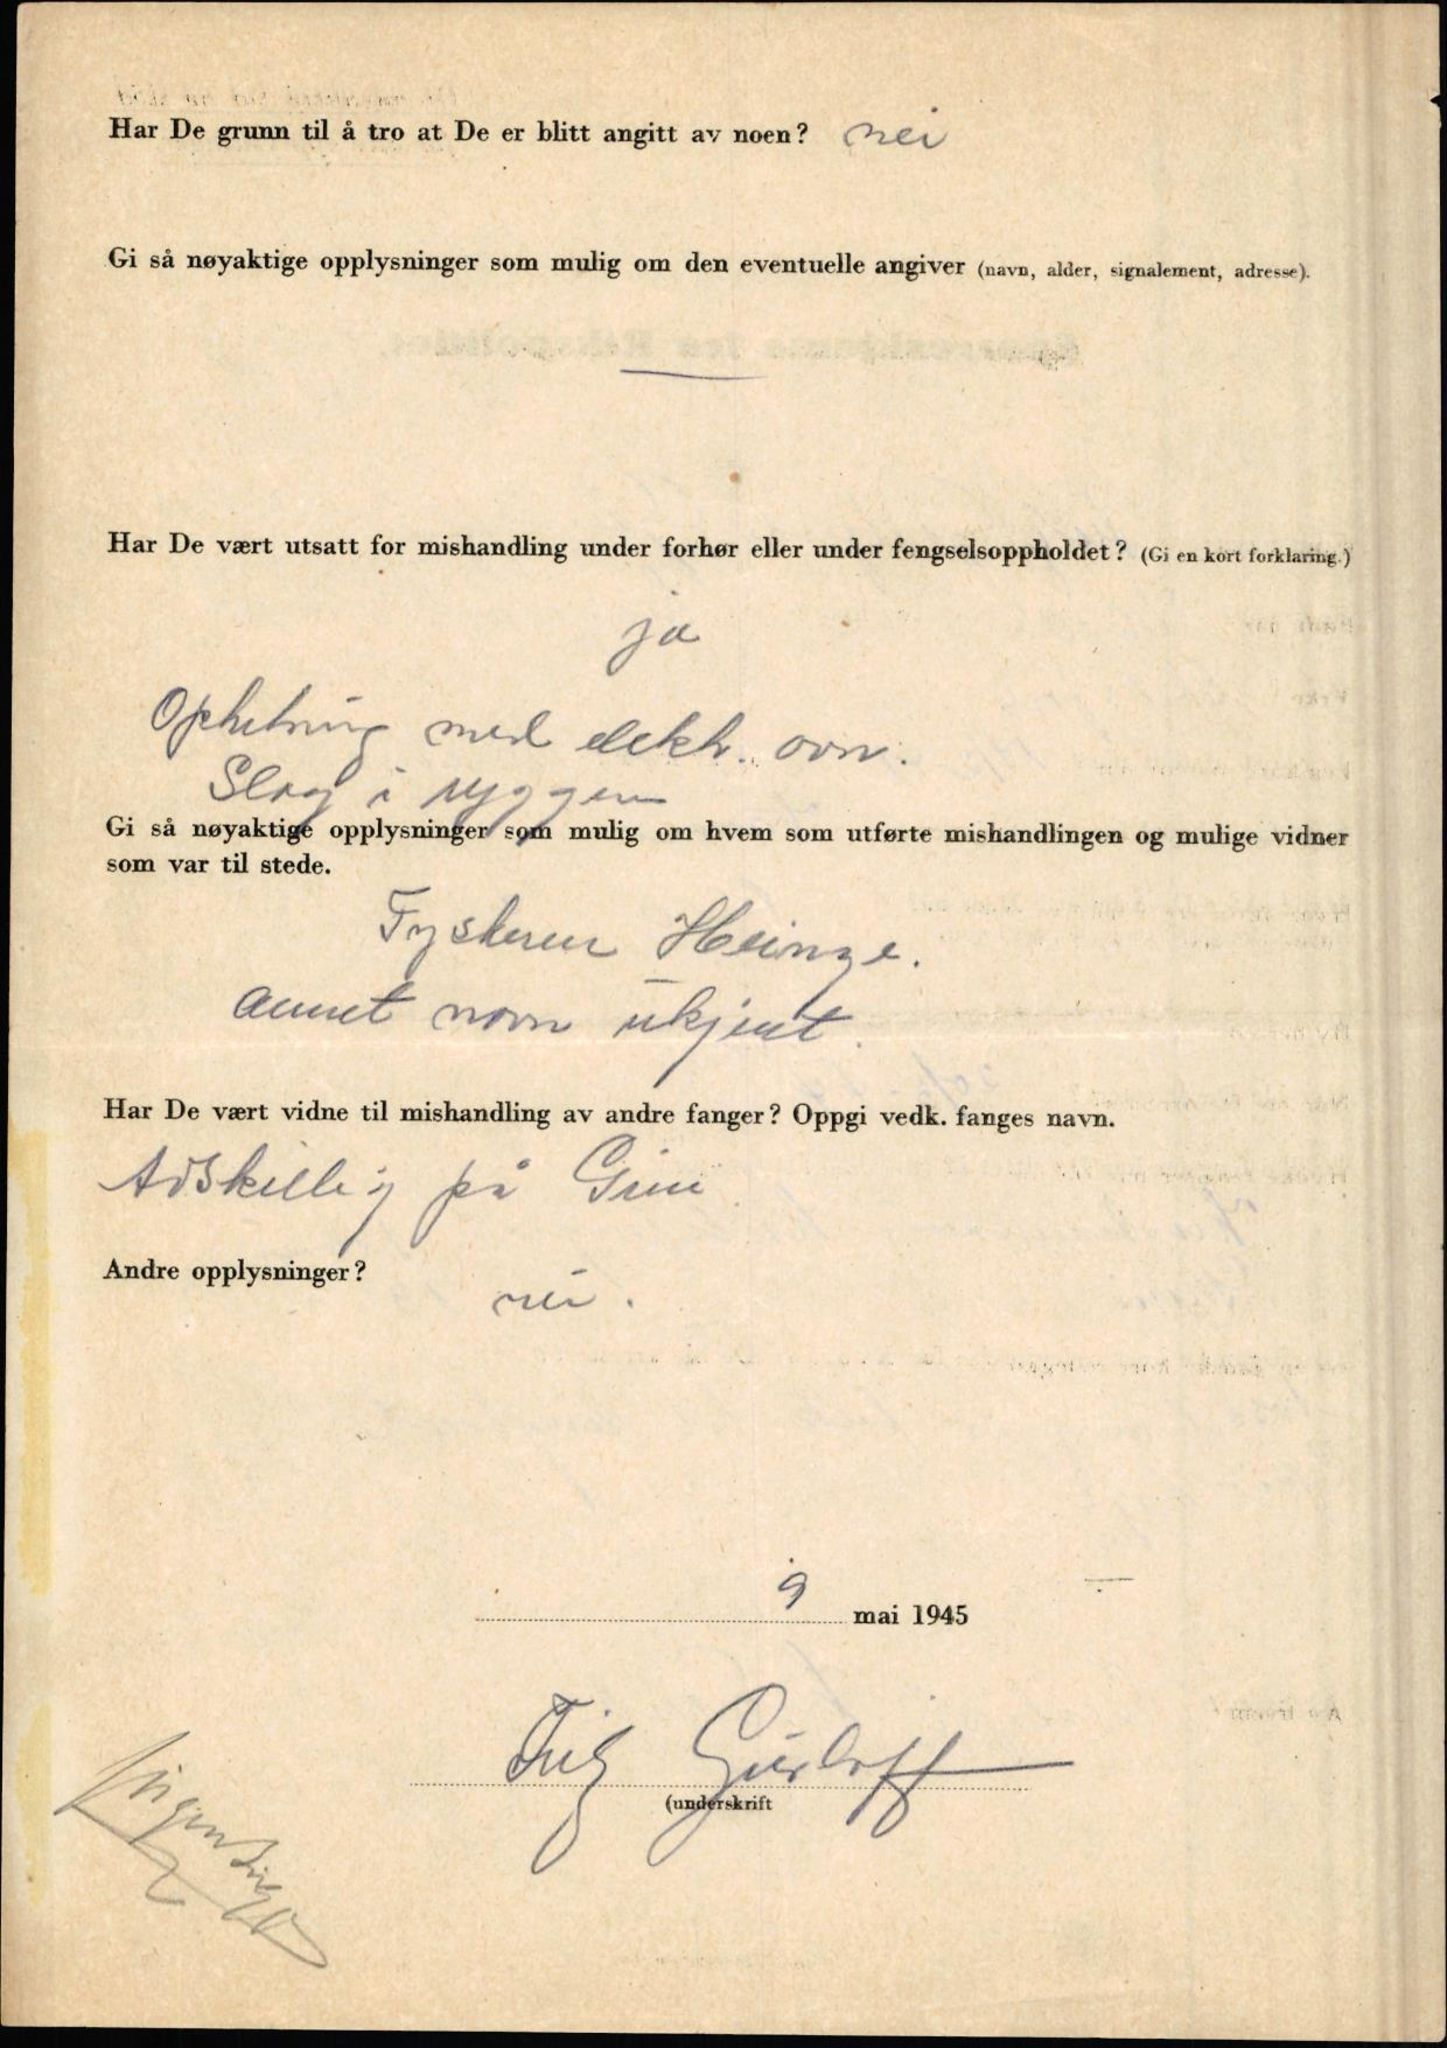 Har De grunn til å tro at De er blitt angitt av noen? nei
Gi så nøyaktige opplysninger som mulig om den eventuelle angiver (navn, alder, signalement, adresse).
Har De vært utsatt for mishandling under forhør eller under fengselsoppholdet? (Gi en kort forklaring.)
ja
Ophetning med elektr. ovn.
Slag i ryggen
Gi så nøyaktige opplysninger som mulig om hvem som utførte mishandlingen og mulige vidner
som var til stede.
Tyskeren Heinze.
annet navn ukjent.
Har De vært vidne til mishandling av andre fanger? Oppgi vedk. fanges navn.
Adskillig på Grini
Andre opplysninger?
nei.
9 mai 1945
(underskrift